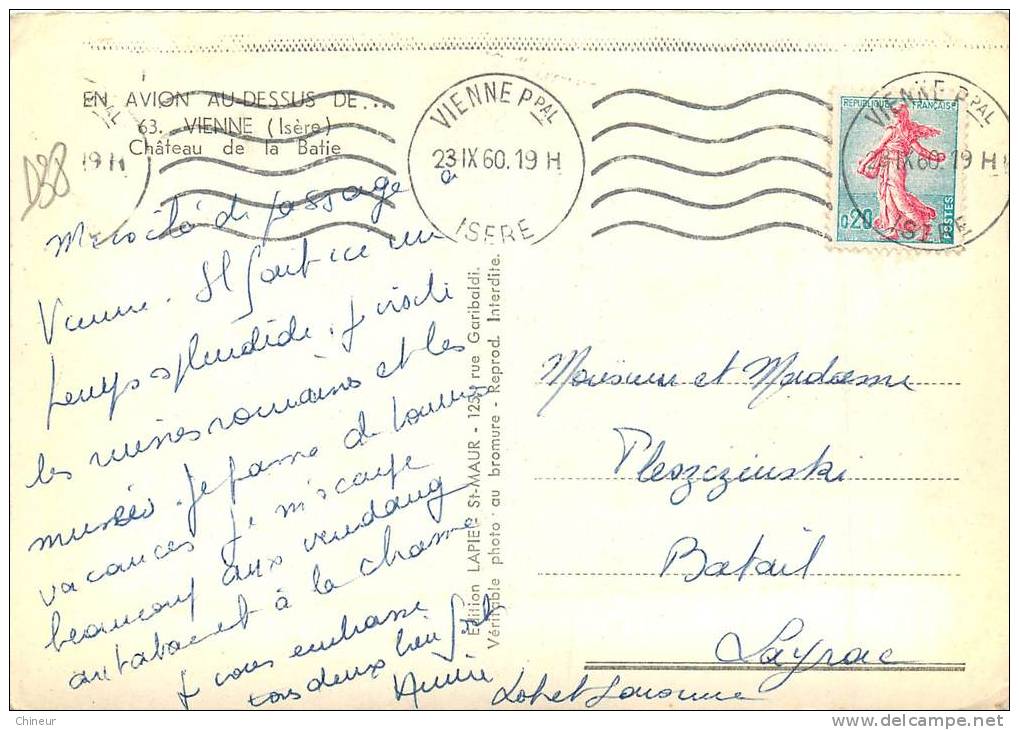 EN AVION AU-DESSUS DE...
63. VIENNE (Isère)
Château de la Batie
D38
19 H
VIENNE PPAL
23 IX 60. 19 H
ISERE
VIENNE PPAL
IX 60. 19 H
ISERE
REPUBLIQUE FRANÇAISE
0,20
POSTES
de passage à
Vienne. Il fait ici un
temps splendide. Je visite
les ruines romaines et les
musées. Je passe de bonnes
vacances je m'occupe
beaucoup aux vendang
au tabac et à la chasse
Je vous embrasse
tous deux bien fort
Edition LAPIE - St-MAUR - 125, rue Garibaldi.
Véritable photo au bromure - Reprod. Interdite.
Monsieur et Madame
Pleszczinski
Batail
Layrac
Chineur
delcampe.net